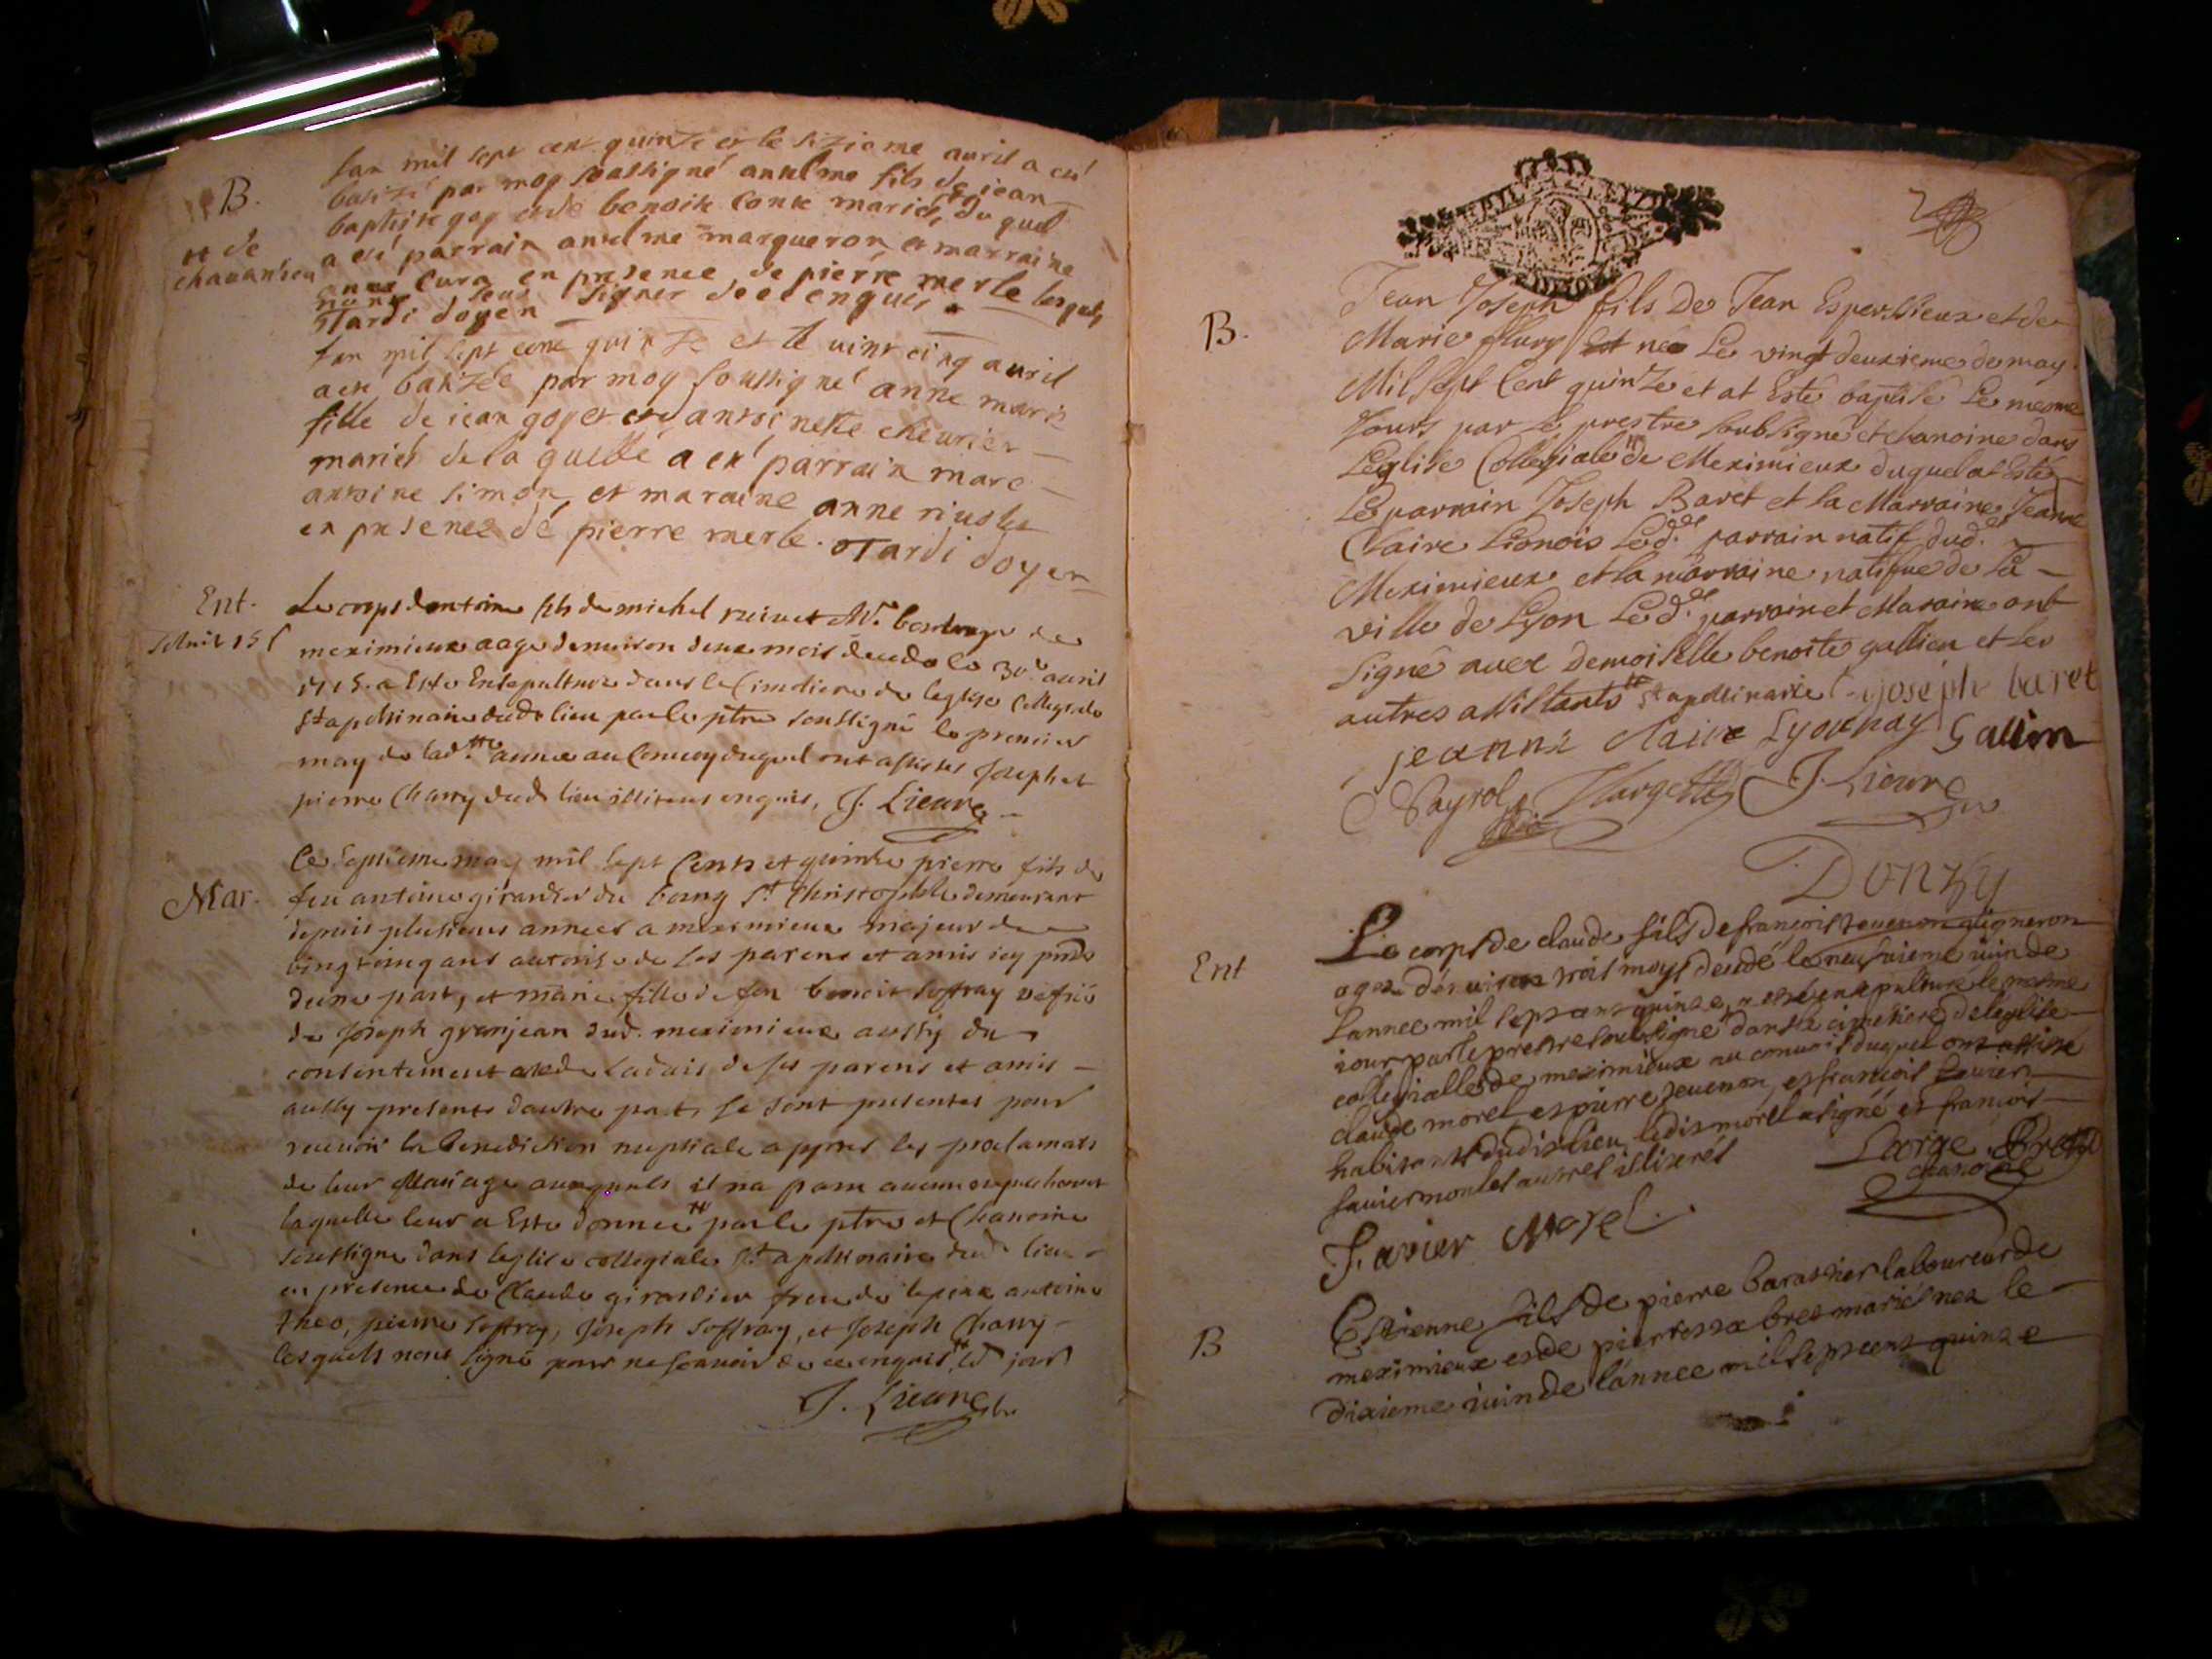 B.
lan mil sept cent quinze et le sizieme auril a eté
batizé par moy soussigné anthelme fils de jean
baptiste goy et de benoite Conte mariés, du quel
a eté parrain anthelme marqueron et marraine
tt de
chauanieu
anne Cura en presence de pierre merle lesquels
nont sceu signer de ce enquis
Tardi doyen
lan mil sept cent quinze et le uint cinq auril
a eté batizée par moy soussigné anne marie
fille de jean goyet et d antoinette cheurier
mariés de la quelle a eté parrain marc
antoine simon et maraine anne
en presence de pierre merle. Tardi doyen
Ent.
Le corps dantoine fils de michel et
meximieux aagé denuiron deux mois decedé le 30e auril
1715. a Esté Ensepulturé dans le Cimetiere de leglise Collegiale
St apollinaire dudt lieu par le ptre soussigné le premier
may de ladtte année au Conuoy duquel ont assistés Joseph et
pierre Charry dudt lieu illiterés enquis, J. Lieure
Mar.
Le septieme may mil sept Cents et quinze pierre fils de
feu antoine girardier du bourg St Christophle demeurant
depuis plusieurs années a meximieux majeur de
vingt cinq ans autorisé de ses parens et amis icy pnts
dune part, et marie fille de feu benoit soffray
de Joseph granjean dud. meximieux aussy du
consentement et de ladvis de ses parens et amis
aussy presents dautre part, se sont presentés pour
receuoir la benediction nuptiale appres les proclamats
de leur Mariage auxquels il na paru aucun
laquelle leur a Esté donnée par le ptre et Chanoine
soussigné dans leglise collegiale St apollinaire dudt lieu
en presence de Claude girardier frere de lepoux antoine
theo, pierre soffray, Joseph soffray, et Joseph Charry
lesquels nont signé pour ne scauoir de ce enquis led jour
J. Lieure
B.
Jean Joseph fils De Jean Esperssieux et de
Marie flury Est née Le vingt deuxieme de may
Mil Sept Cent quinze et at Esté baptisé Le mesme
Jours par le prestre soubsigné et chanoine dans
Leglise Collegiale de Meximieux duquel at Esté
Le parrain Joseph Baret et la Marraine Jeanne
Claire Lionois Led. parrain natif dud.
Meximieux et la marraine natifue de la
ville de Lyon Led. parrain et Maraine ont
signé auec Demoiselle benoite gallien et les
autres assistants St apollinaire joseph baret
jeanne claire Lyonnay Gallien
Payrol J. Lieure
Donzy
Ent
Le corps de claude fils de francois teuenon uigneron
agez denuiron trois moys decedé le neufuieme iuin de
lannee mil sept cent quinze a esté ensepulturé le mesme
iour par le prestre soubsigné dans le cimetiere de leglise
collegialle de meximieux au conuoit duquel ont assisté
claude morel et pierre teuenon et francois fauier
habitants dudit lieu ledit morel a signé et francois
fauier non les autres illiterés
chanoine
fauier Morel
B
Estienne fils de pierre baratier laboureur de
meximieux et de mariés nez le
dixieme iuin de lannee mil sept cent quinze